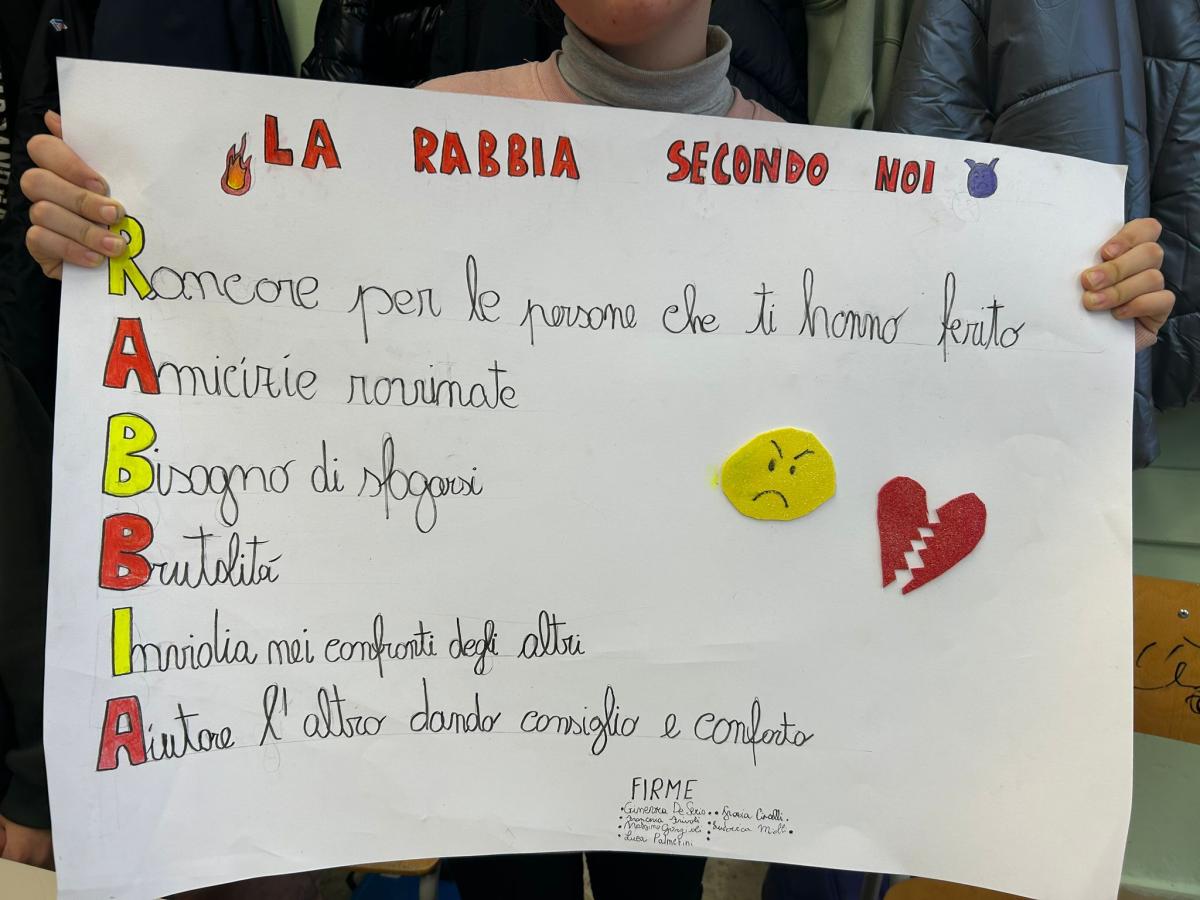 LA RABBIA SECONDO NOI
Rancore per le persone che ti hanno ferito
Amicizie rovinate
Bisogno di sfogarsi
Brutalitá
Invidia nei confronti degli altri
Aiutare l'altro dando consiglio e conforto
FIRME
• Ginevra De Serio
• Francesca
• Massimo
• Luca Palmerini